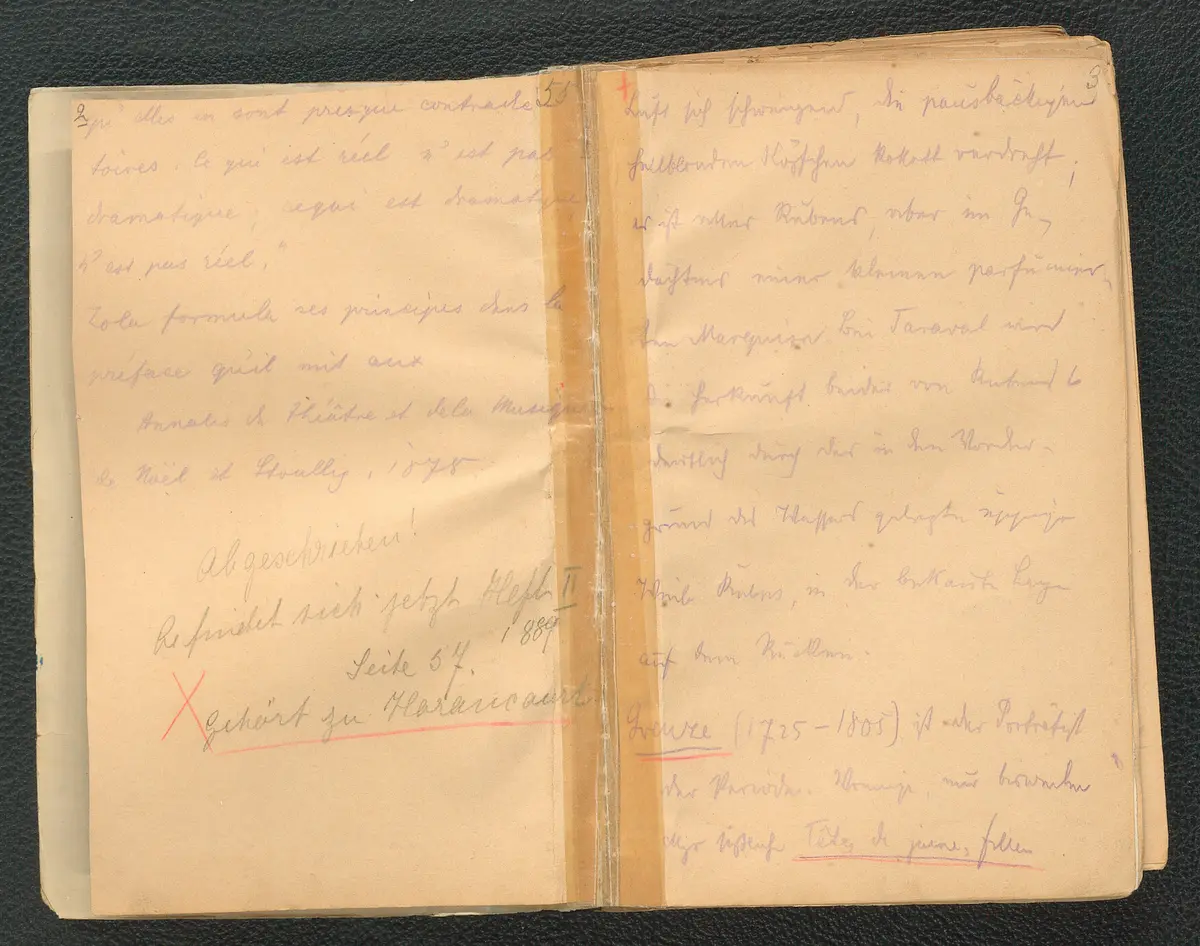 2 55
qu'elles en sont presque contradic
toires. Ce qui est réel n'est pas
dramatique; ce qui est dramatique
n'est pas réel."
Zola formula ses principes dans la
préface qu'il mit aux
Annales du Théâtre et de la Musique
de Noël et Stoullig, 1878
Abgeschrieben!
Befindet sich jetzt Heft II
1889
Seite 57.
gehört zu Harancourt
3
Luft sich schwingend, die pausbäckigen
hellblonden Köpfchen kokett verdreht;
er ist Rubens, aber im Ge-
dächtnis einer kleinen parfümier-
ten Marquise. Bei Taraval wird
die Herkunft beider von Rubens
deutlich durch das in den Vorder-
grund des Wassers gelegte üppige
Weib Rubens, in der bekannten Lage
auf dem Rücken.
Greuze (1725-1805) ist der Porträtist
der Periode. nur bisweilen
süßliche Têtes de jeunes filles